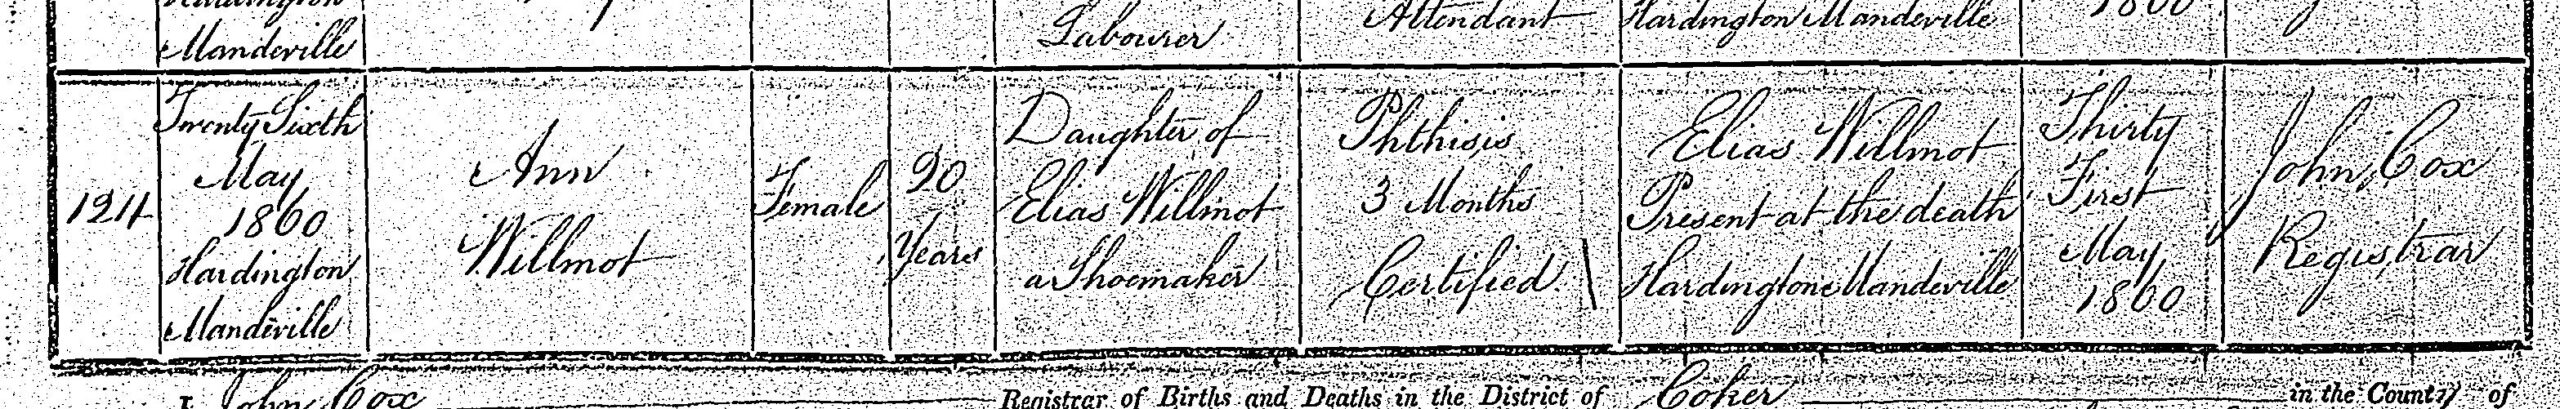 Mandeville
Labourer
Attendant
Hardington Mandeville
1860
124
Twenty Sixth
May
1860
Hardington
Mandeville
Ann
Willmot
Female
20
Years
Daughter of
Elias Willmot
a Shoemaker
Phthisis
3 Months
Certified
Elias Willmot
Present at the death
Hardington Mandeville
Thirty
First
May
1860
John Cox
Registrar
I John Cox Registrar of Births and Deaths in the District of Coker in the County of